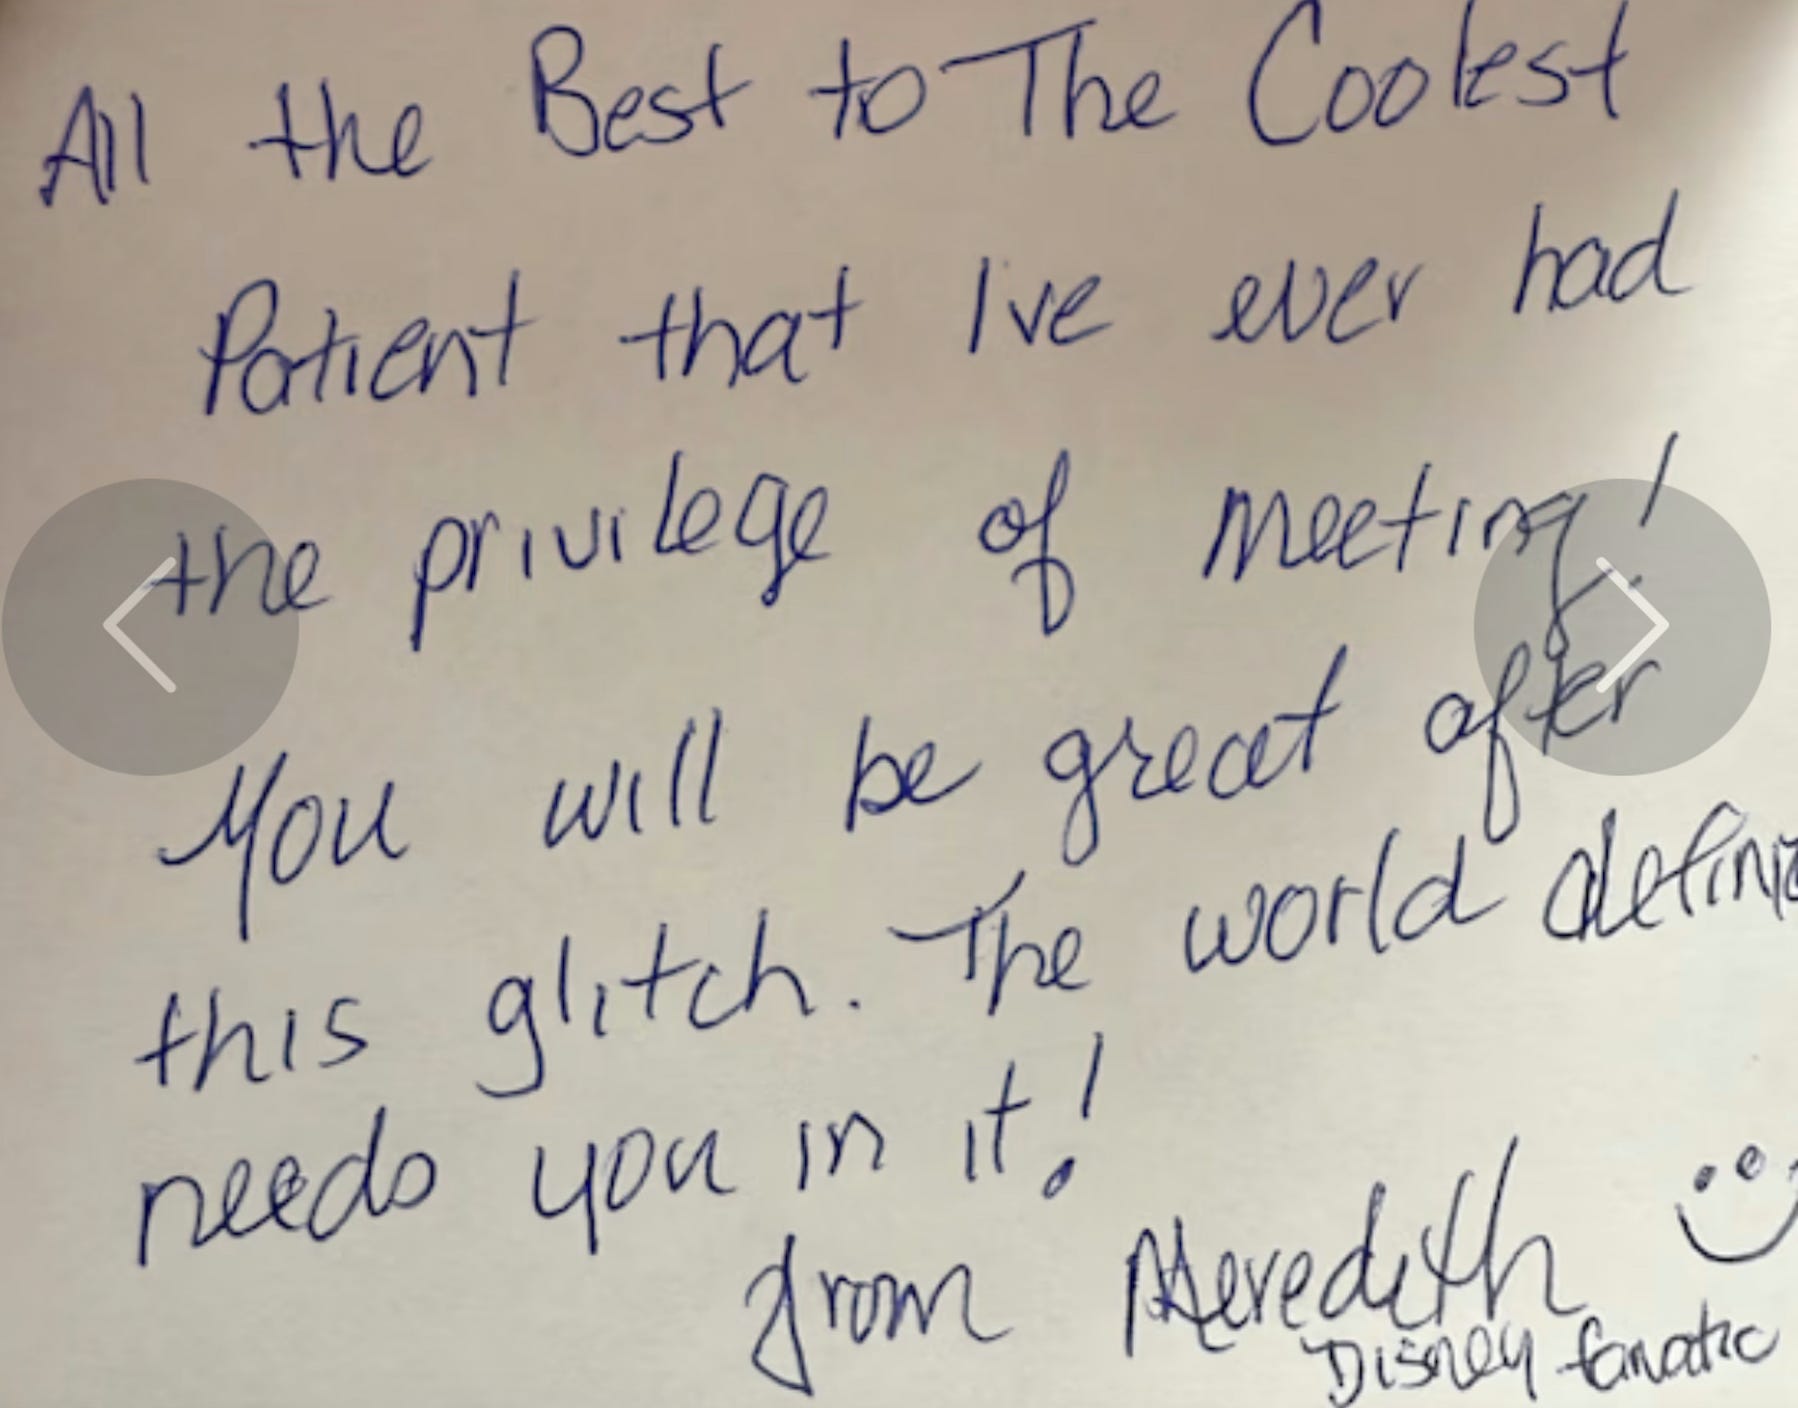 All the Best to The Coolest
Patient that I've ever had
the privilege of meeting!
You will be great after
this glitch. The world
needs you in it!
from Meredith
Disney fanatic